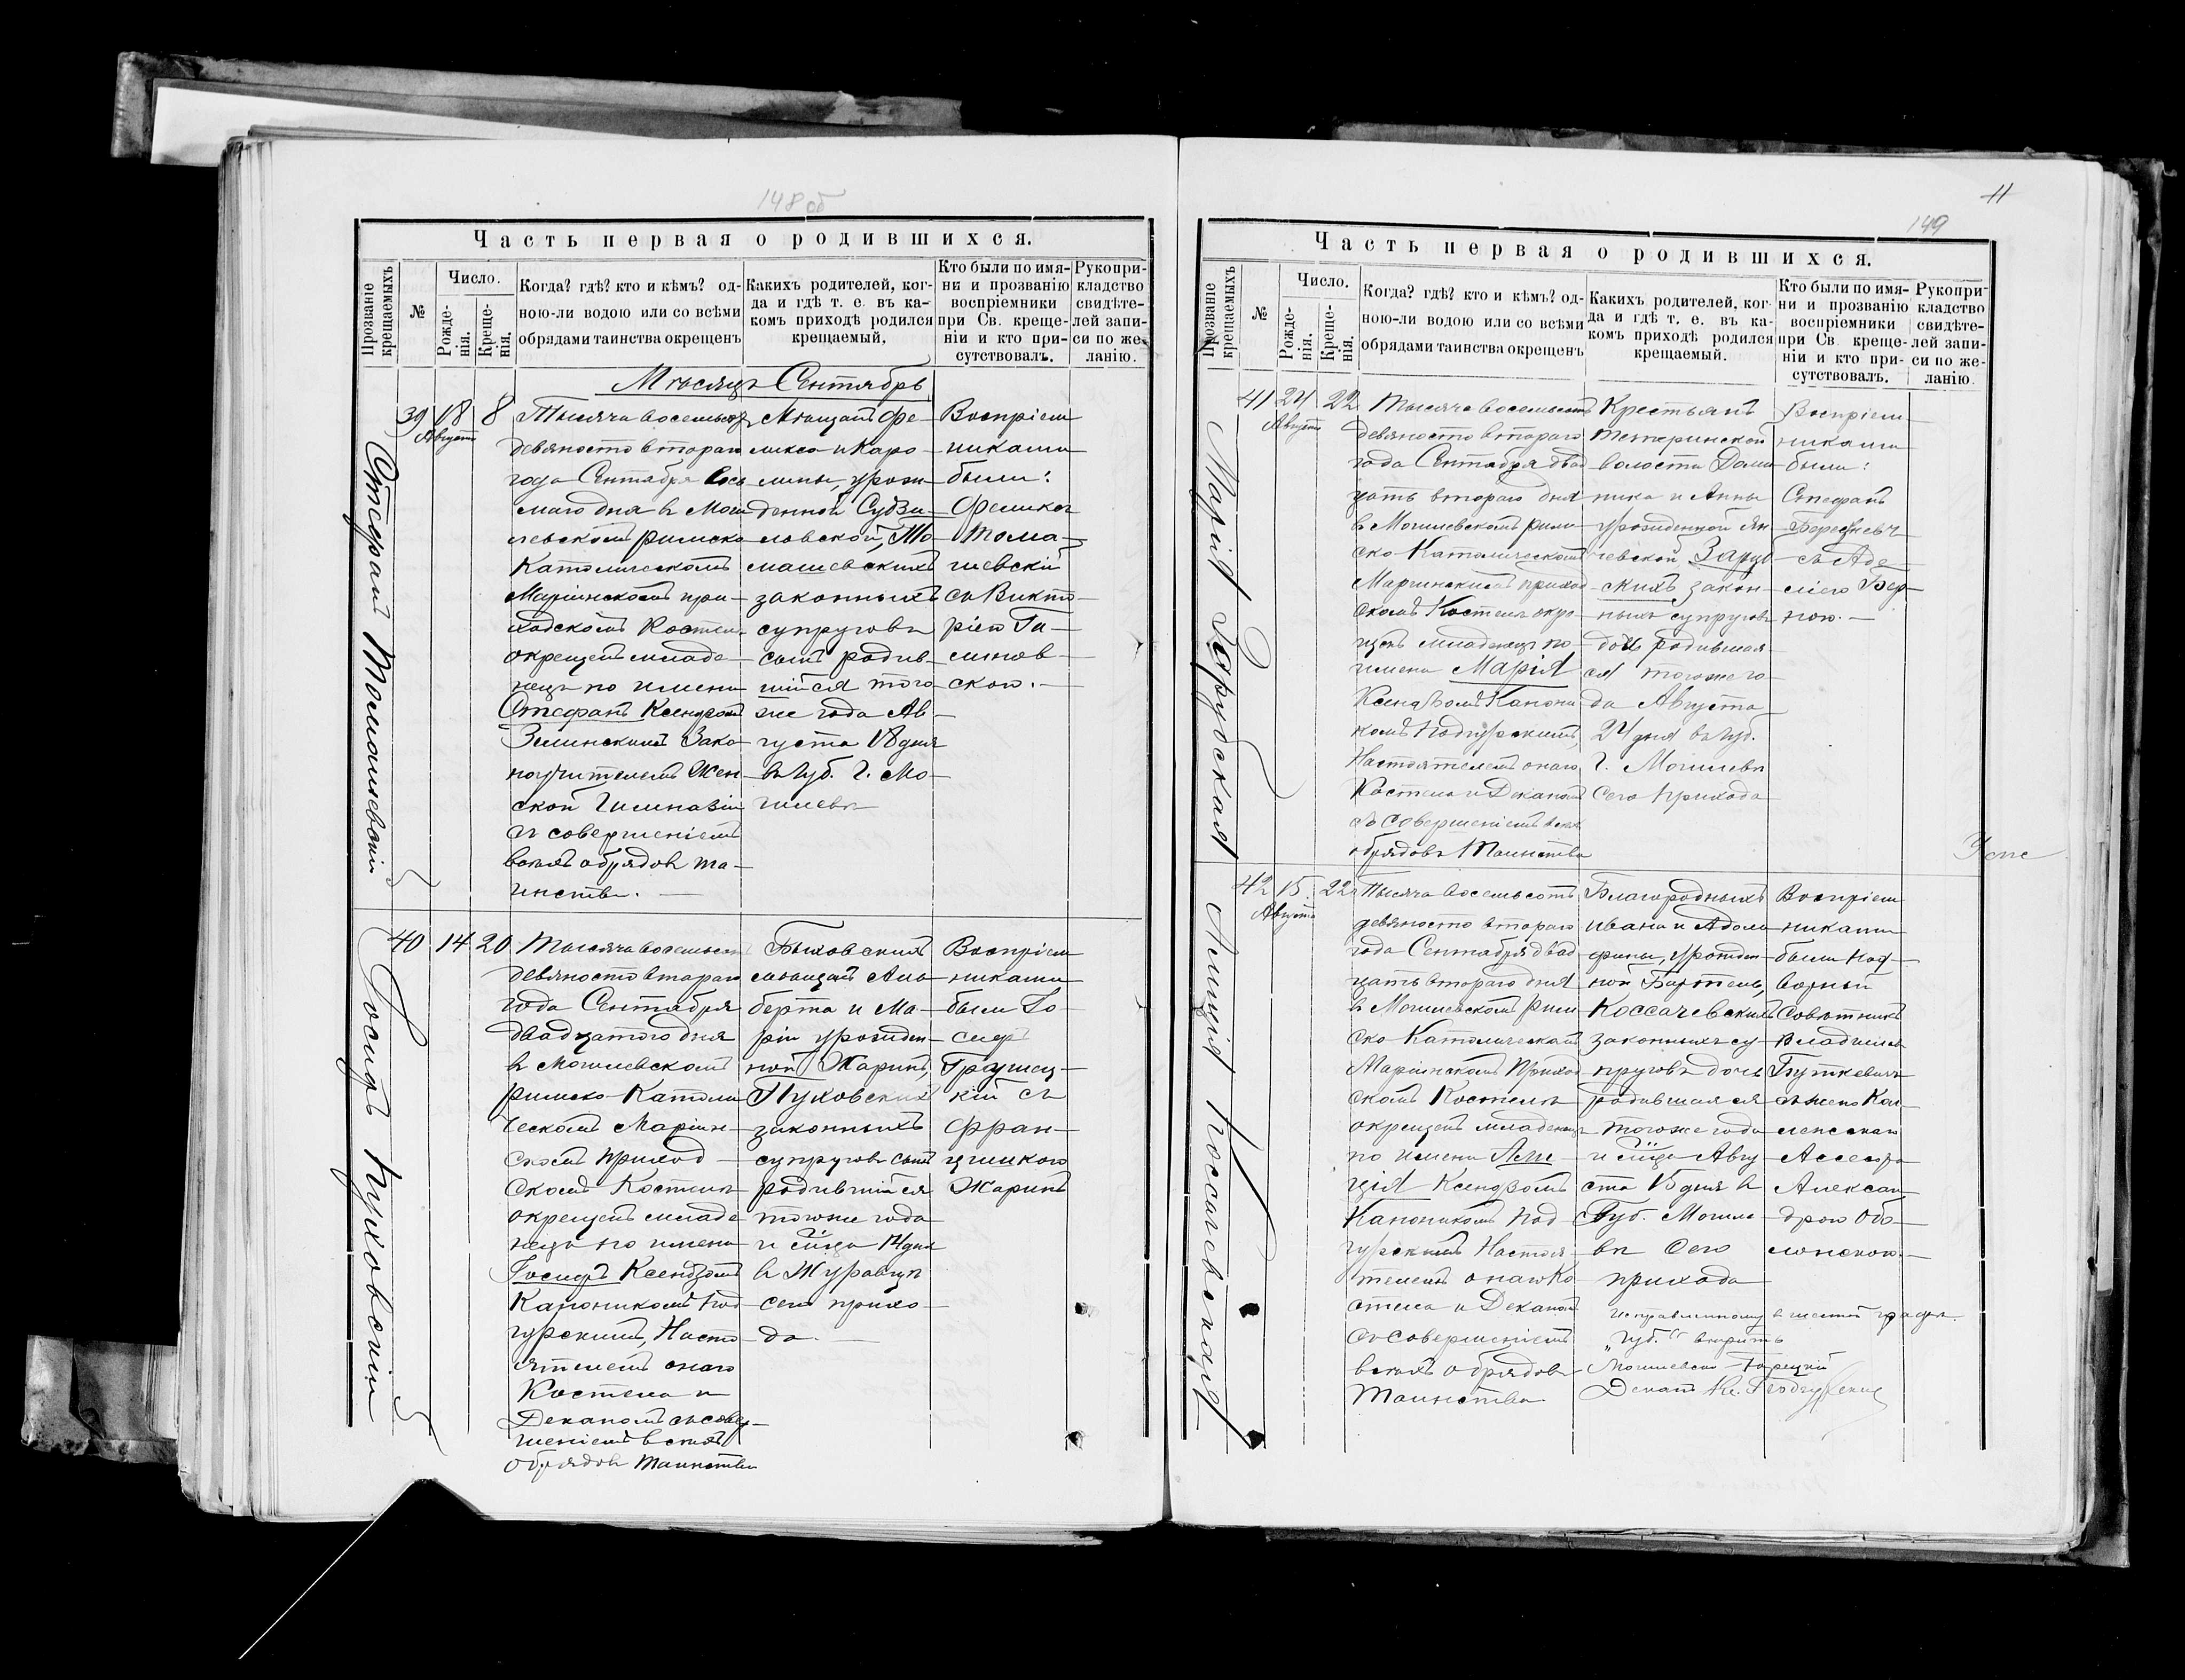 148 об
Часть первая о родившихся.
Прозваніе крещаемыхъ
№
Число.
Рожде-
нія.
Креще-
нія.
Когда? гдѣ? кто и кѣмъ? од-
ною-ли водою или со всѣми
обрядами таинства окрещенъ
Какихъ родителей, ког-
да и гдѣ т. е. въ ка-
комъ приходѣ родился
крещаемый.
Кто были по имя-
ни и прозванію
воспріемники
при Св. креще-
ніи и кто при-
сутствовалъ.
Рукопри-
кладство
свидѣте-
лей запи-
си по же-
ланію.
Мѣсяцъ Сентябрь
Стефанъ Томашевскій
39
18
Августа
8
Тысяча восемьсотъ
девяносто втораго
года Сентября вось
маго дня въ Моги
левскомъ римско
Католическомъ
Маріинскомъ при-
ходскомъ Костелѣ
окрещенъ младе-
нецъ по имени
Стефанъ Ксендзомъ
Зелинскимъ Зако-
ноучителемъ Жен-
ской Гимназіи
съ совершеніемъ
всѣхъ обрядовъ та-
инства.
Мѣщанъ Фе-
ликса и Каро-
лины, урож-
денной Судзи-
ловской, То-
машевскихъ
законныхъ
супруговъ
сынъ родив-
шійся того
же года Ав-
густа 18 дня
въ губ. г. Мо-
гилевѣ
Воспріем
никами
были:
Феликсъ
Тома-
шевскій
съ Викто-
ріею Га-
линов-
скою.
Іосифъ Пуховскій
40
14
20
Тысяча восемьсотъ
девяносто втораго
года Сентября
двадцатаго дня
въ Могилевскомъ
римско-Католи
ческомъ Маріин-
скомъ приход-
скомъ Костелѣ
окрещенъ младе
нецъ по имени
Іосифъ Ксендзомъ
Каноникомъ Под
гурскимъ, Насто
ятелемъ онаго
Костела и
Деканомъ съ совер-
шеніемъ всѣхъ
обрядовъ таинства
Быховскихъ
мѣщанъ Аль
берта и Ма-
ріи урожден-
ной Жаринъ,
Пуховскихъ
законныхъ
супруговъ сынъ
родившійся
тогоже года
и сего мѣсяца 14 дня
въ Журавцѣ
сего прихо-
да.
Воспріем
никами
были Іо-
сифъ
кій съ
Фран-
цишкою
Жаринъ
11
149
Часть первая о родившихся.
Прозваніе крещаемыхъ
№
Число.
Рожде-
нія.
Креще-
нія.
Когда? гдѣ? кто и кѣмъ? од-
ною-ли водою или со всѣми
обрядами таинства окрещенъ
Какихъ родителей, ког-
да и гдѣ т. е. въ ка-
комъ приходѣ родился
крещаемый.
Кто были по имя-
ни и прозванію
воспріемники
при Св. креще-
ніи и кто при-
сутствовалъ.
Рукопри-
кладство
свидѣте-
лей запи-
си по же-
ланію.
Марія Зарудская
41
24
Августа
22
Тысяча восемьсотъ
девяносто втораго
года Сентября двад
цать втораго дня
въ Могилевскомъ рим-
ско-Католическомъ
Маріинскомъ приход
скомъ Костелѣ окре-
щенъ младенецъ по
имени Марія
Ксендзомъ Канони
комъ Подгурскимъ,
Настоятелемъ онаго
Костела и Деканомъ
съ совершеніемъ всѣхъ
обрядовъ Таинства
Крестьянъ
Тетеринской
волости Доми
ника и Анны
урожденной Ян
чевской Заруд-
скихъ закон-
ныхъ супруговъ
дочь родившая
ся тогоже го-
да Августа
24 дня въ губ.
г. Могилевѣ
Сего прихода
Воспріем-
никами
были:
Стефанъ
съ Аде-
лією Бер-
ною.
Леникія Коссачевская
42
15
Августа
22
Тысяча восемьсотъ
девяносто втораго
года Сентября двад
цать втораго дня
въ Могилевскомъ Рим
ско-Католическомъ
Маріинскомъ Приход
скомъ Костелѣ
окрещенъ младенецъ
по имени
Ксендзомъ
Каноникомъ Под-
гурскимъ Настоя-
телемъ онаго Ко-
стела и Деканомъ
съ совершеніемъ
всѣхъ обрядовъ
Таинства
Благородныхъ
Ивана и Адоль-
фины, урожден-
ной Бартель,
Коссачевскихъ
законныхъ су-
пруговъ дочь
родившаяся
тогоже года
и мѣсяца Авгу-
ста 15 дня въ
Губ. Могиле-
вѣ Сего
прихода
Воспріем
никами
были Над-
ворный
Совѣтникъ
Владиміръ
Буткевичъ
съ женою Кол-
лежскаго
Ассесора
Алексан
дрою Обо-
лонскою.
Исправленному въ шестой графѣ
„губ.“ вѣрить
Могилевско-Горецкій
Деканъ Кс. Подгурскій